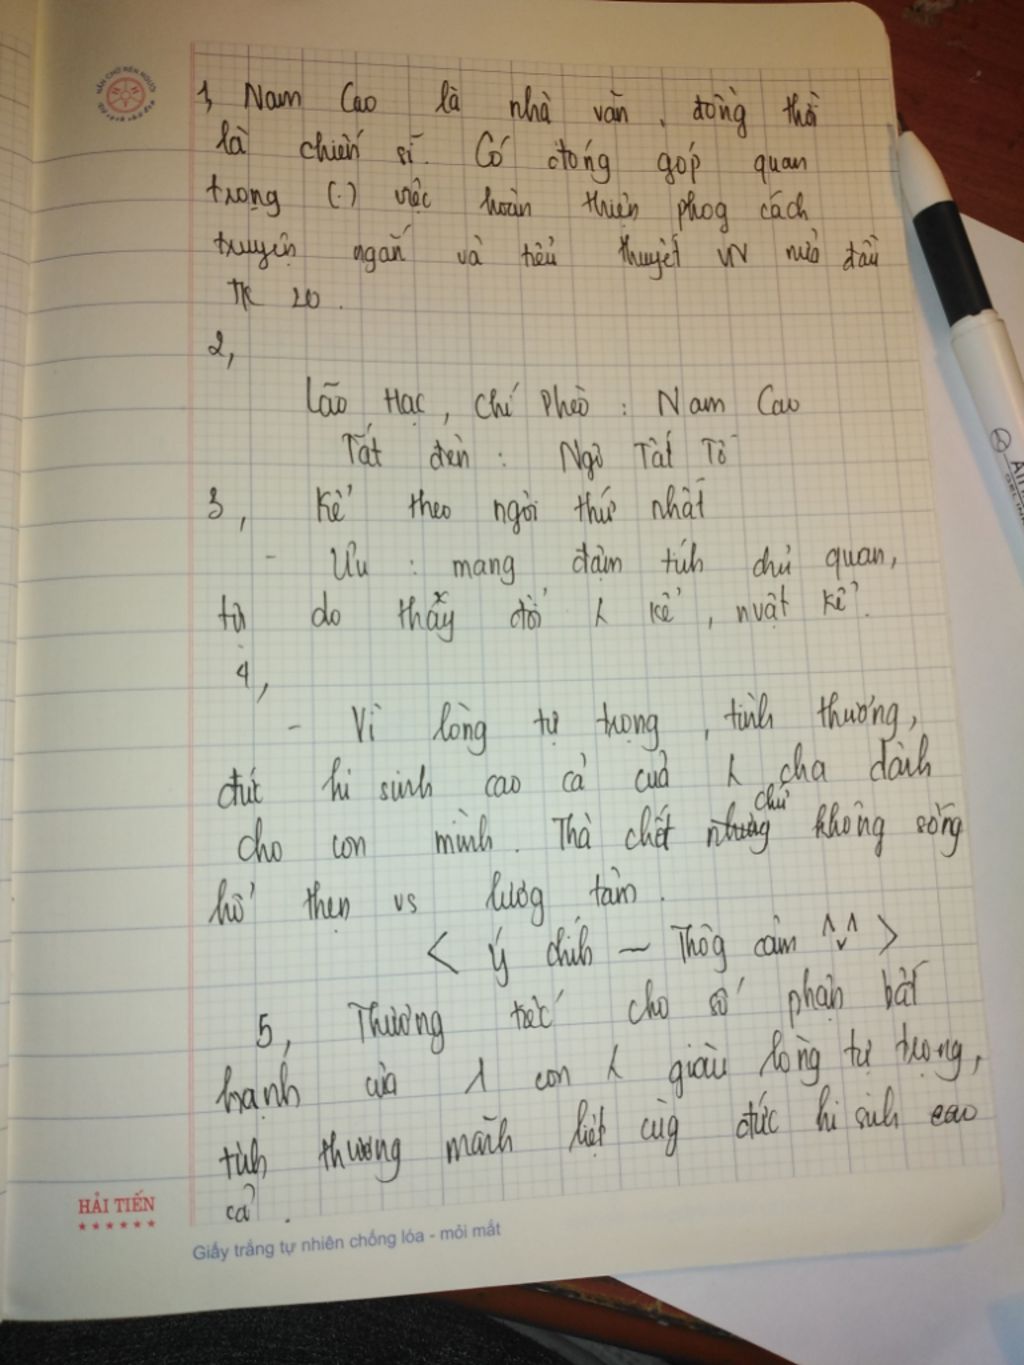 1, Nam Cao là nhà văn, đồng thời
là chiến sĩ. Có đóng góp quan
trọng (.) việc hoàn thiện phog cách
truyện ngắn và tiểu thuyết VN nửa đầu
TK 20.
2,
Lão Hạc, Chí Phèo : Nam Cao
Tắt đèn : Ngô Tất Tố
3, Kể theo ngôi thứ nhất
- Ưu : mang đậm tính chủ quan,
tự do thay đổi kể, nvật kể.
4,
- Vì lòng tự trọng, tình thương,
đức hi sinh cao cả của cha dành
chứ
cho con mình. Thà chết không sống
hổ thẹn vs lươg tâm.
< Ý chính — Thôg cảm ^v^ >
5, Thương tiếc cho số phận bất
hạnh của 1 con giàu lòng tự trọng,
tình thương mãnh liệt cùg đức hi sinh cao
cả.
HẢI TIẾN
Giấy trắng tự nhiên chống lóa - mỏi mắt